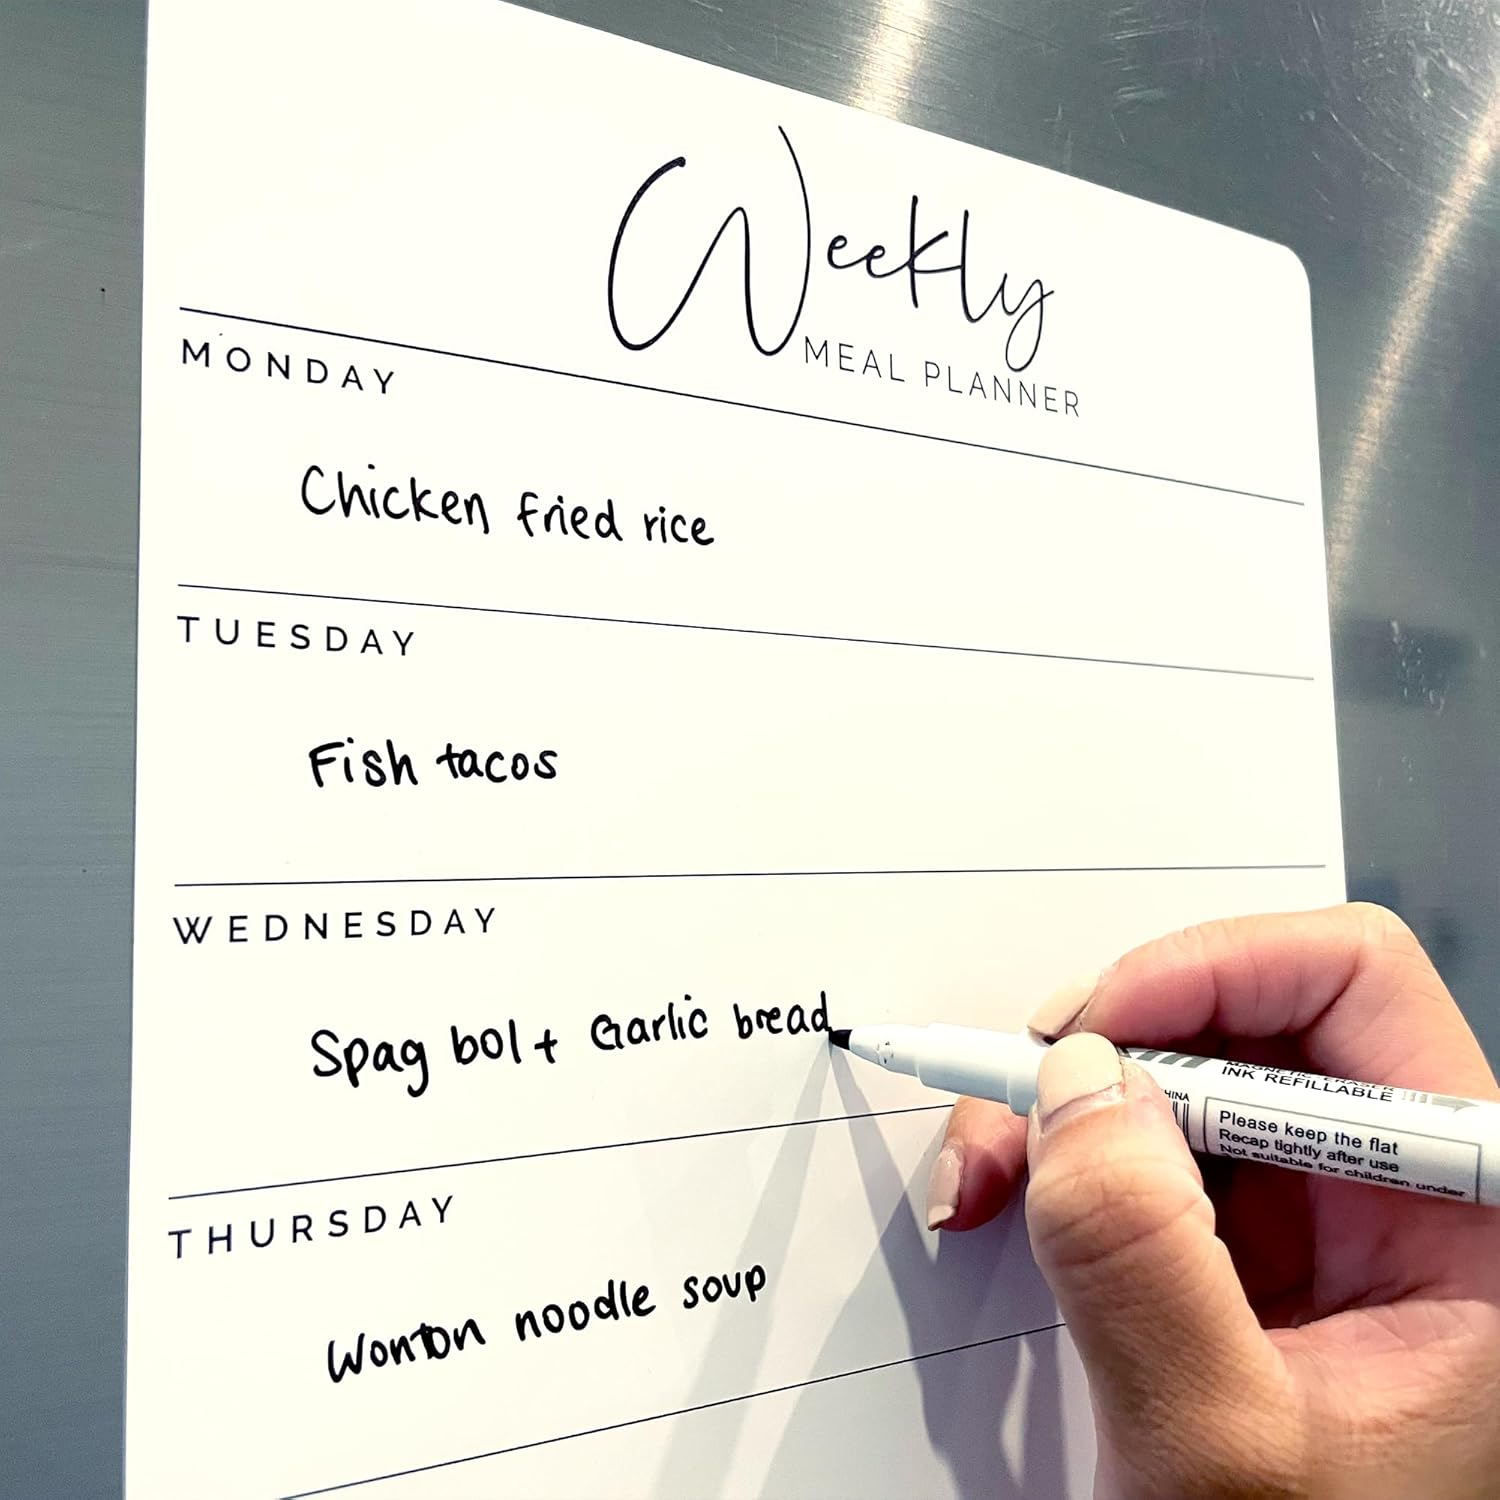 Weekly
MEAL PLANNER
MONDAY
Chicken fried rice
TUESDAY
Fish tacos
WEDNESDAY
Spag bol + Garlic bread
THURSDAY
Wonton noodle soup
MAGNETIC ERASER
INK REFILLABLE
CHINA
Please keep the flat
Recap tightly after use
Not suitable for children under